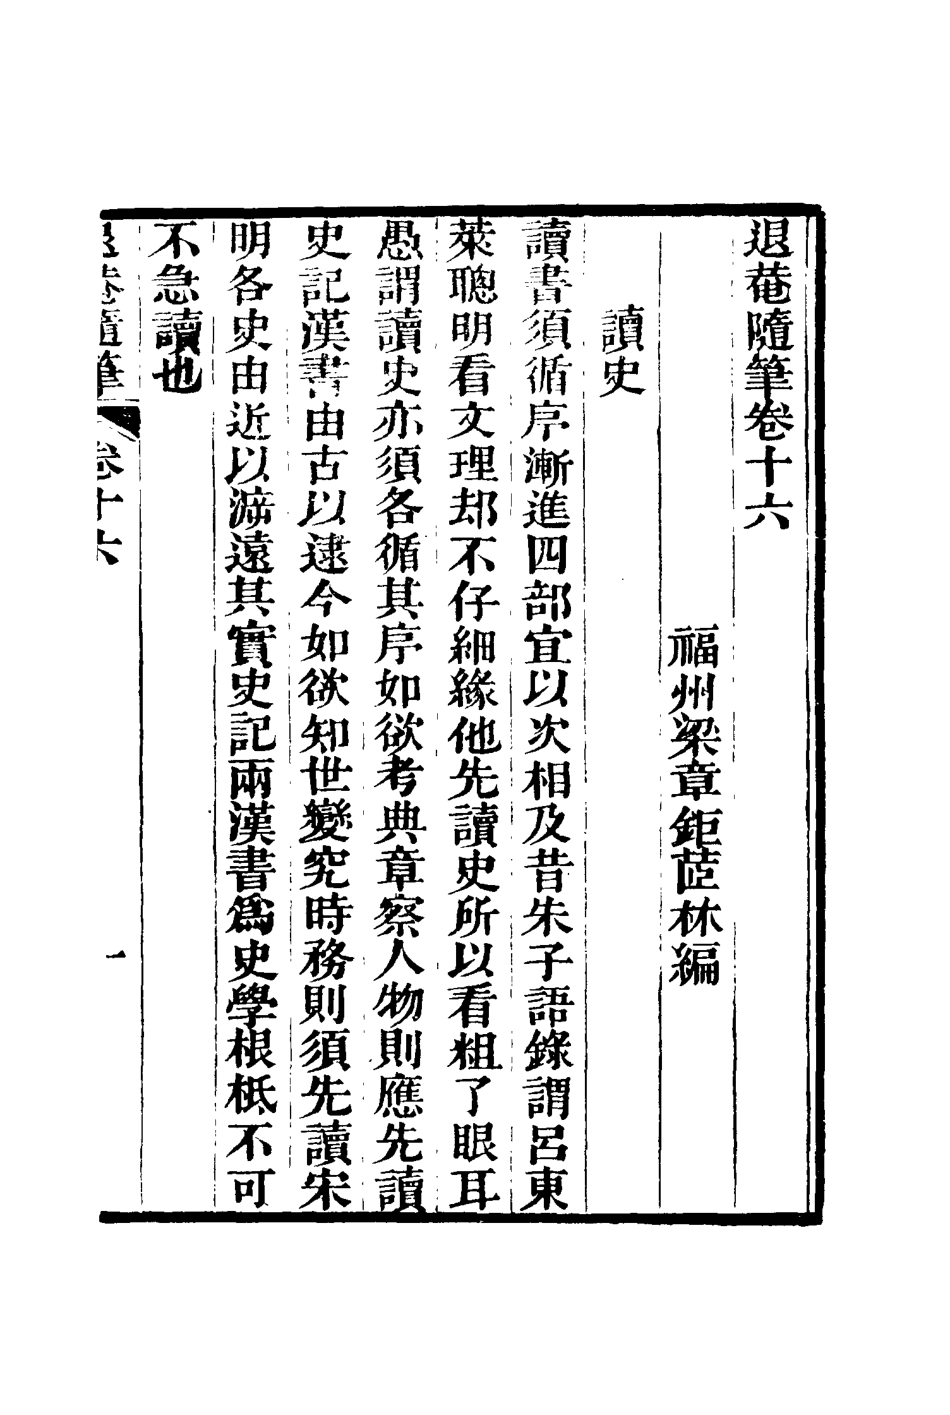 退菴隨筆卷十六
福州梁章鉅茝林編
讀史
讀書須循序漸進四部宜以次相及昔朱子語錄謂呂東
萊聰明看文理却不仔細緣他先讀史所以看粗了眼耳
愚謂讀史亦須各循其序如欲考典章察人物則應先讀
史記漢書由古以逮今如欲知世變究時務則須先讀宋
明各史由近以溯遠其實史記兩漢書爲史學根柢不可
不急讀也
退菴隨筆 卷十六 一